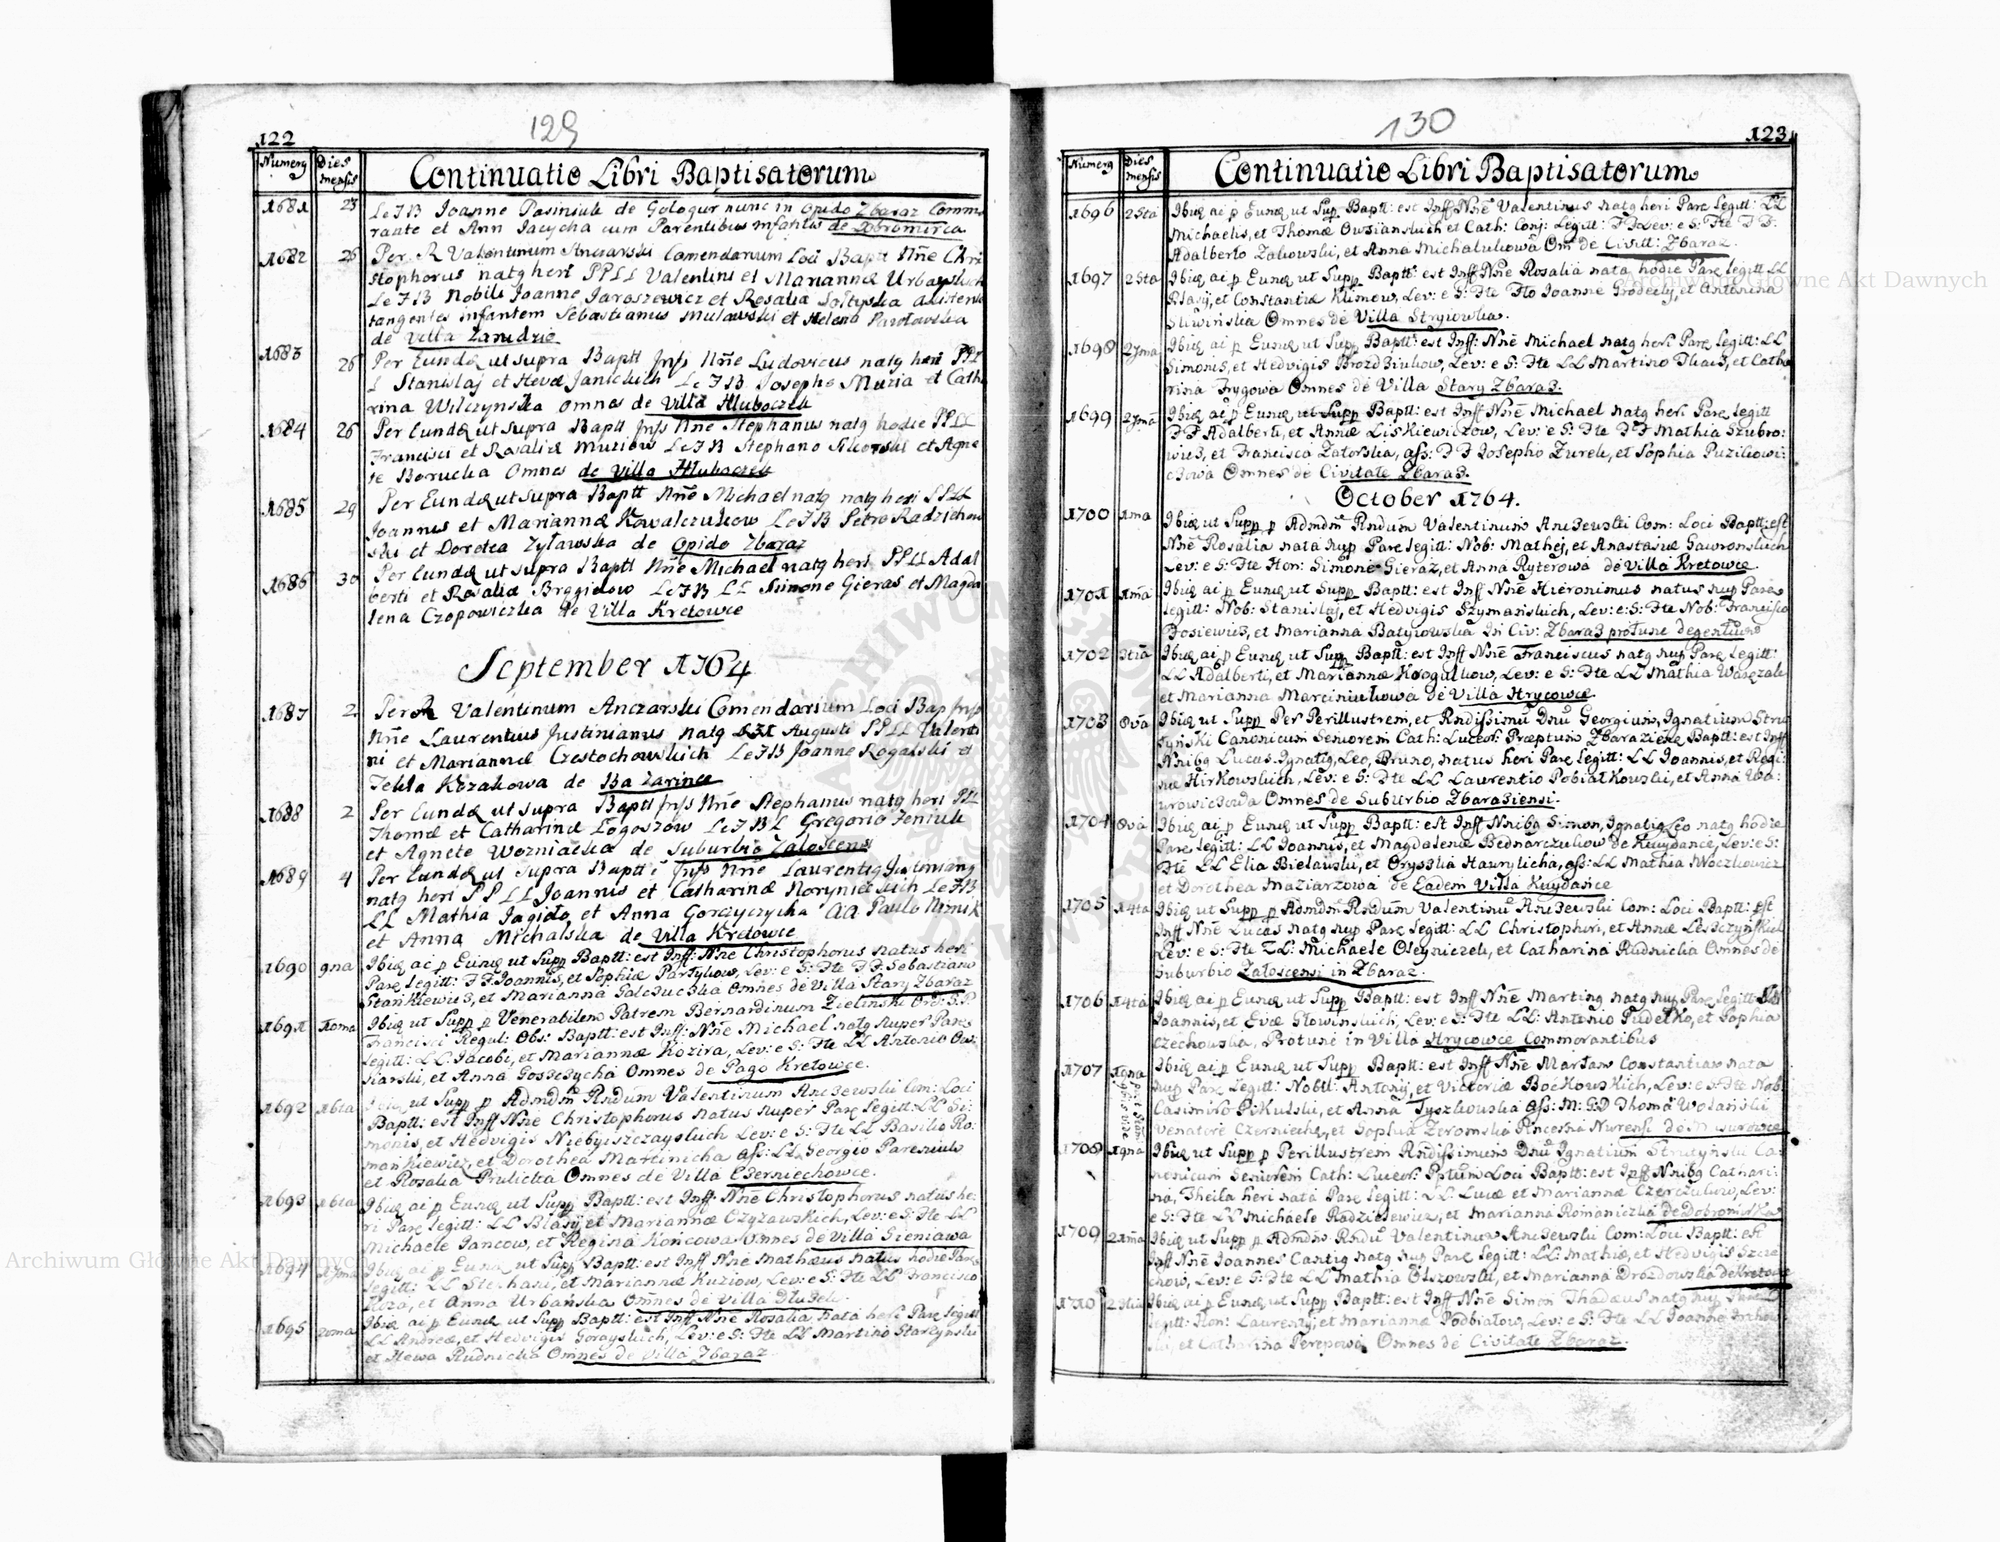 129
122
Numerq Dies mensis Continuatio Libri Baptisatorum
1681 23 Le I B Joanne Pasiniuk de Gologur nunc in Opido Zbaraz Commo
rante et Ann Jacycha cum Parentibus infantis de Dobromirca
1682 26 Per R Valentinum Anczarski Comendarium Loci Bapt Nñe Chri
stophorus natq heri PPLL Valentini et Mariannæ
Le I B Nobili Joanne Jaroszewicz et Rosalia Soltyska
tangentes infantem Sebastianus Mulawski et Helena Pawlowska
de Villa Zarudzie
1683 26 Per Eundē ut supra Baptt Infs Nñe Ludovicus natq heri PPL
L Stanislaj et Hevæ Janickich Le I B Josepho Muzia et Cath
rina Wilczynska omnes de Villa Hluboczek
1684 26 Per Eundē ut supra Baptt Infs Nñe Stephanus natq hodie PPLL
Francisci et Rosaliæ Muziow Le I B Stephano Sikorski et Agne
te Borucka Omnes de Villa Hluboczek
1685 29 Per Eundē ut supra Baptt Nñe Michael natq natq heri PPLL
Joannis et Mariannæ Kowalczukow Le I B Petro Radzichow
ski et Dorotea Zylawska de Opido Zbaraz
1686 30 Per Eundē ut supra Baptt Nñe Michael natq heri PPLL Adal
berti et Rosaliæ Le I B LL Simone Gieras et Magda
lena Czopowiczka de Villa Kretowce
September 1764
1687 2 Per R Valentinum Anczarski Comendarium Loci Bap Infs
Nñe Laurentius Justinianus natq Augusti PPLL Valenti
ni et Mariannæ Czestochowskich Le I B Joanne Rogalski et
Tekla Kozakowa de Bazarince
1688 2 Per Eundē ut supra Baptt Infs Nñe Stephanus natq heri PPL
Thomæ et Catharinæ Logoszow Le I B L Gregorio Feniuk
et Agnete Wozniacka de Suburbio Zaloscens
1689 4 Per Eundē ut supra Baptt Infs Nñe Laurentiq Justinianq
natq heri PPLL Joannis et Catharinæ Le I B
LL Mathia Jagielo et Anna Gorczyczycha aa Paulo Nimik
et Anna Michalska de Villa Kretowce
1690 9na Ibiq ai p Eunq ut Supp Baptt: est Inff: Nñe Christophorus natus heri
Parq legitt: FF Joannis, et Sophiæ Partykow, Lev: e S: Fte FF: Sebastiano
Stankiewicz, et Marianna Galczucka Omnes de Villa Stary Zbaraz
1691 10ma Ibiq ut Supp p Venerabilem Patrem Bernardinum Zielinski Ord: S: P:
Francisci Regul: Obs: Baptt: est Inff: Nñe Michael natq nuper Parq
legitt: LL Jacobi, et Mariannæ Kozira, Lev: e S: Fte LL Antonio Ow:
siarski, et Anna Goszczycha Omnes de Pago Kretowce.
1692 16ta Ibiq ut Supp p Admdm̃ Rndum Valentinum Anczewski Com: Loci
Baptt: est Inff Nñe Christophorus natus nuper Parq legitt: LL Si:
monis, et Hedvigis Niebyiszczayskich Lev: e S: Fte LL Basilio Ro:
mankiewicz, et Dorothea Marcinicha ass: LL Georgio Pareniuk
et Rosalia Prulicka Omnes de Villa Czerniechowce.
1693 16ta Ibiq ai p Eunq ut Supp Baptt: est Inff Nñe Christophorus natus he:
ri Parq legitt: LL Blasij, et Mariannæ Czyzawskich, Lev: e S: Fte LL
Michaele Jancow, et Regina Koncowa Omnes de Villa Gieniawa
1694 17ma Ibiq ai p Eunq ut Supp Baptt: est Inff Nñe Mathæus natus hodie Parq
legitt: LL Stephani, et Mariannæ Kuziow, Lev: e S: Fte LL Francisco
Koza, et Anna Urbanska Omnes de Villa
1695 20ma Ibiq ai p Eunq ut Supp Baptt: est Inff Nñe Rosalia nata heri Parq legitt
LL Andreæ, et Hedvigis Gorayskich, Lev: e S: Fte LL Martino Starzynski
et Hewa Rudnicka Omnes de Villa Zbaraz.
130
123
Numerq Dies mensis Continuatio Libri Baptisatorum
1696 25ta Ibiq ai p Eunq ut Supp Baptt: est Inff Nñe Valentinus natq heri Parq legitt: LL
Michaelis, et Thomæ Owsianskich et Cath: Conj: legitt: FF Lev: e S: Fte FF:
Adalberto Zalowski, et Anna Michalukowa Om̃ de Civitt: Zbaraz.
1697 25ta Ibiq ai p Eunq ut Supp Baptt: est Inff Nñe Rosalia nata hodie Parq legitt LL
Blasij, et Constantiæ Klimow, Lev: e S: Fte Flo Joanne Grodecky, et Antonina
Sliwińska Omnes de Villa Stryiowka.
1698 27ma Ibiq ai p Eunq ut Supp Baptt: est Inff: Nñe Michael natq heri Parq legitt: LL
Simonis, et Hedvigis Brozdziukow, Lev: e S: Fte LL Martino Tkacz, et Catha
rina Frygowa Omnes de Villa Stary Zbaraz.
1699 27mã Ibiq ai p Eunq ut Supp Baptt: est Inff Nñe Michael natq heri Parq legitt
FF Adalberti, et Annæ Liskiewiczow, Lev: e S: Fte FF Mathia Szubro:
wicz, et Francisca Zatorska, ass: FF Josepho Zurek, et Sophia Puzikowi:
czowa Omnes de Civitate Zbaraz.
October 1764.
1700 1ma Ibiq ut Supp p Admdm̃ Rndum Valentinum Anczewski Com: Loci Baptt: est
Nñe Rosalia nata nup Parq legitt: Nob: Mathej, et Anastasiæ Gawronskich
Lev: e S: Fte Hon: Simone Gieraz, et Anna Ryterowa de Villa Kretowce.
1701 1mã Ibiq ai p Eunq ut Supp Baptt: est Inf Nñe Hieronimus natus nup Parq
legitt: Nob: Stanislaj, et Hedvigis Szymańskich, Lev: e S: Fte Nob: Francisco
Dosiewicz, et Marianna Batyiowska in Civ: Zbaraz protunc degentium
1702 3tia Ibiq ai p Eunq ut Supp Baptt: est Inff Nñe Franciscus natq nup Parq legitt:
LL Adalberti, et Mariannæ Lev: e S: Fte LL Mathia
et Marianna Marciniukowa de Villa Hrycowce.
1703 8va Ibiq ut Supp Per Perillustrem, et Rndissimũ Dnũ Georgium, Ignatium Stru
tynski Canonicum Seniorem Cath: Luceor: Præptum Zbaraziens Baptt: est Inff
Nnibq Lucas Ignatiq, Leo, Bruno, natus heri Parq legitt: LL Joannis, et Regi
næ Hirkowskich, Lev: e S: Fte LL Laurentio Pobiatkowski, et Anna Wa:
wrowiczowa Omnes de Suburbio Zbaraziensi.
1704 8va Ibiq ai p Eunq ut Supp Baptt: est Inff Nnibq Simon, Ignatiq Leo natq hodie
Parq legitt: LL Joannis, et Magdalenæ Bednarczukow de Kuydańce, Lev: e S:
Fte LL Elia Bielawski, et Oryszka Hawrylicha, ass: LL Mathia Woczkowicz
et Dorothea Maziarzowa de Eadem Villa Kuydańce
1705 14ta Ibiq ut Supp p Admdm̃ Rndum Valentinũ Anczewski Com: Loci Baptt: est
Inff Nñe Lucas natq nup Parq legitt: LL Christophori, et Annæ Leszczynskich
Lev: e S: Fte LL: Michaele Oleyniczek, et Catharina Rudnicka Omnes de
Suburbio Zaloscensi in Zbaraz.
1706 14ta Ibiq ai p Eunq ut Supp Baptt: est Inff Nñe Martinq natq nup Parq legitt: LL
Joannis, et Evæ Glowinskich, Lev: e S: Fte LL: Antonio Pudelko, et Sophia
Czechowska, Protunc in Villa Hrycowce Commorantibus
1707 19na Ibiq ai p Eunq ut Supp Baptt: est Inff Nñe Constantia nata
nup Parq legitt: Nobil: Antonij, et Victoriæ Boekowskich, Lev: e S: Fte Nob:
Casimiro Pikulski, et Anna Tyszkowska ass: M: GD Thoma Wolański
Venatore Czerniech, et Sophia Zeromska Pincerna Nurensi de
1708 19na Ibiq ut Supp p Perillustrem Rndissimum Dnũ Ignatium Strutynski Ca:
nonicum Seniorem Cath: Luceor: Pptum Loci Baptt: est Inff Nnibq Cathari:
na, Thekla heri nata Parq legitt: LL: Lucæ et Mariannæ Czerczukow, Lev:
e S: Fte LL Michaele Radziejewicz, et Marianna Romaniczka de Dobromirka
1709 21mã Ibiq ut Supp p Admdm̃ Rndũ Valentinum Anczewski Com: Loci Baptt: est
Inff Nñe Joannes Cantiq natq nup Parq legitt: LL: Mathiæ, et Hedvigis
chow, Lev: e S: Fte LL Mathia Olszowski, et Marianna Drozdowska de Kretowce
1710 23tia Ibiq ai p Eunq ut Supp Baptt: est Inff Nñe Simon Thadæus natq nup Parq
legitt: Hon: Laurentij, et Mariannæ Podbiatow, Lev: e S: Fte LL Joanne
et Catharina Perepowa Omnes de Civitate Zbaraz.
Archiwum Główne Akt Dawnych
Archiwum Główne Akt Dawnych